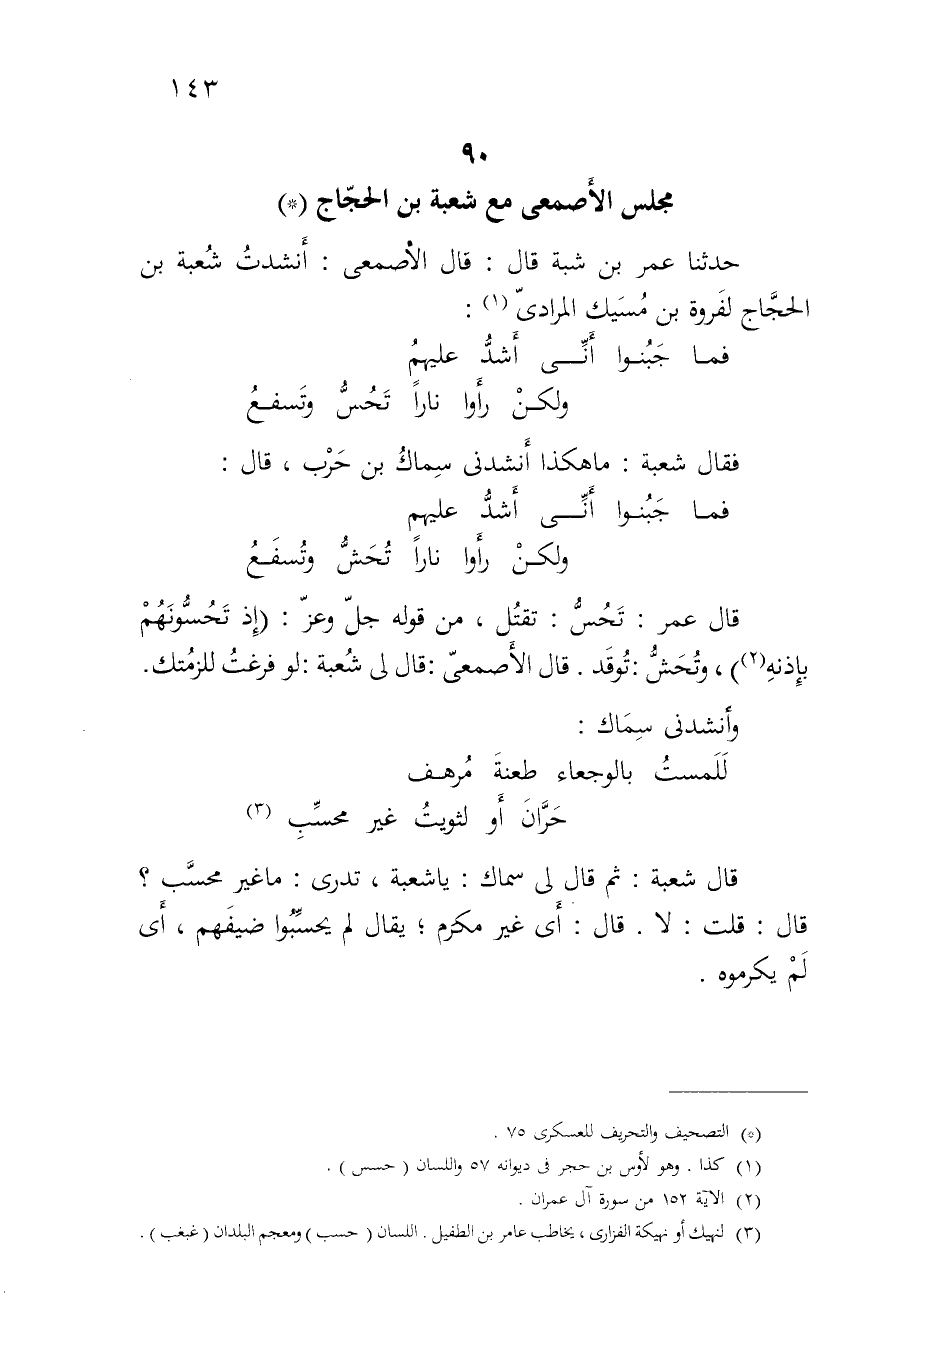 ١٤٣
٩٠
مجلس الأَصمعى مع شعبة بن الحجّاج (*)
حدثنا عمر بن شبة قال : قال الأصمعى : أَنشدتُ شُعبة بن
الحجَّاج لفَروة بن مُسَيك المرادىّ (١) :
فمـا جَبُنـوا أَنِّـــى أَشدُّ عليهمُ
ولكـنْ رأَوا ناراً تَحُسُّ وتَسفـعُ
فقال شعبة : ماهكذا أَنشدنى سِماكُ بن حَرْب ، قال :
فمـا جَبُنـوا أَنِّـــى أَشدُّ عليهم
ولكـنْ رأَوا ناراً تُحَشُّ وتُسفَـعُ
قال عمر : تَحُسُّ : تقتُل ، من قوله جلّ وعزّ : (إِذ تَحُسُّونَهُمْ
بإِذنهِ(٢)) ، وتُحَشُّ :تُوقَد . قال الأَصمعىّ :قال لى شُعبة :لو فرغتُ للزمُتك.
وأَنشدنى سِمَاك :
لَلَمستُ بالوجعاء طعنةَ مُرهـف
حَرَّانَ أَو لثويتُ غير محسِّبِ (٣)
قال شعبة : ثم قال لى سماك : ياشعبة ، تدرى : ماغير محسَّب ؟
قال : قلت : لا . قال : أَى غير مكرم ؛ يقال لم يحسِّبُوا ضيفَهم ، أَى
لَمْ يكرموه .
(*) التصحيف والتحريف للعسكرى ٧٥ .
(١) كذا . وهو لأوس بن حجر فى ديوانه ٥٧ واللسان ( حسس ) .
(٢) الآية ١٥٢ من سورة آل عمران .
(٣) لنهيك أو نهيكة الفزارى ، يخاطب عامر بن الطفيل . اللسان ( حسب ) ومعجم البلدان ( غبغب ) .